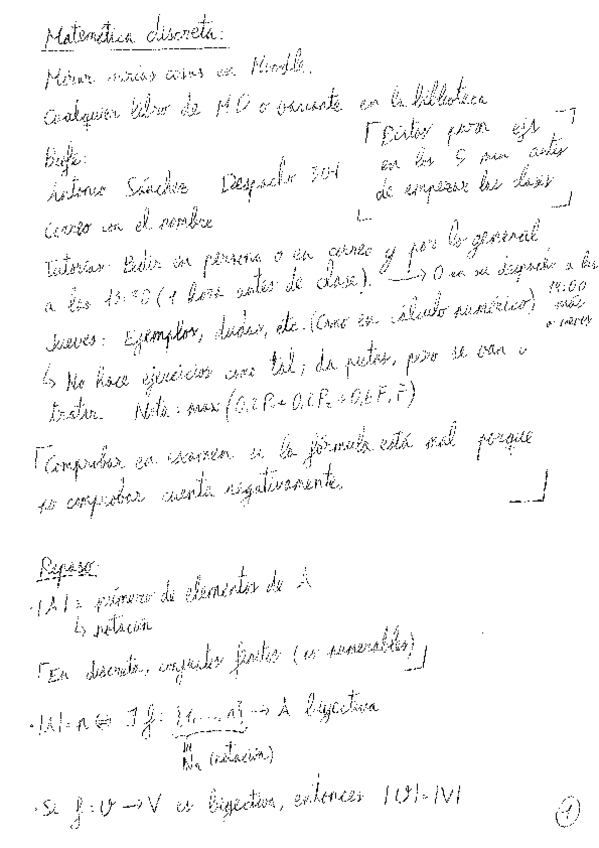 Matemática discreta:
Mirar varias cosas en Moodle.
Cualquier libro de MD o variante en la biblioteca
Profe:
Antonio Sánchez Despacho 304
Correo con el nombre
⌈Pistas para ejs
en los 5 min antes
de empezar las clases⌋
Tutorías: Pedir en persona o en correo y por lo general,
a las 13:30 (1 hora antes de clase). → O en su despacho a las
14:00
más
o menos
Jueves: Ejemplos, dudas, etc. (Como en cálculo numérico)
↳ No hace ejercicios como tal; da pistas, pero se van a
tratar. Nota: max(0,2P₁+0,2P₂+0,6F, F)
⌈Comprobar en examen si la fórmula está mal porque
no comprobar cuenta negativamente.⌋
Repaso:
·|A| = número de elementos de A
↳ notación
⌈En discreta, conjuntos finitos (o numerables)⌋
·|A|=n ⇔ ∃ f: {1,...,n} → A bijectiva
ℕₙ (notación)
·Si f: U → V es bijectiva, entonces |U|=|V|
1